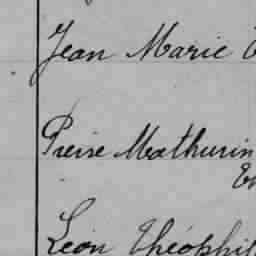 Jean Marie
Pierre Mathurin
Léon Théophil